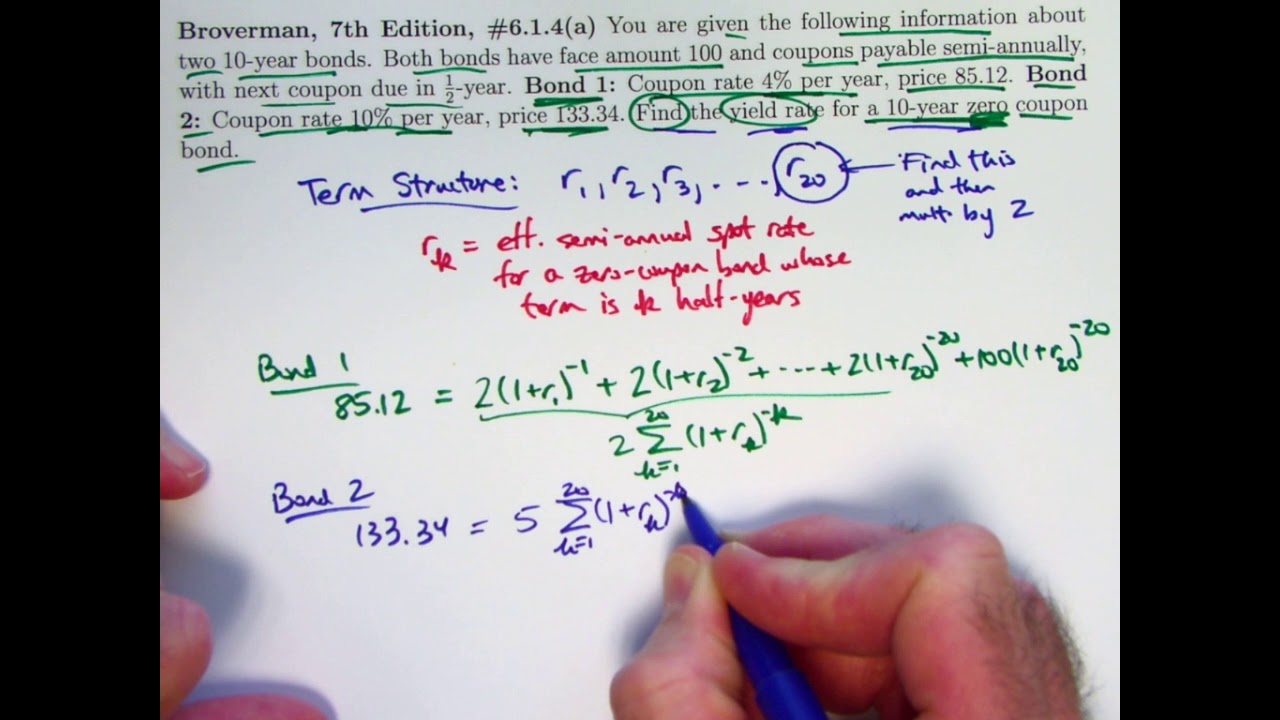 Broverman, 7th Edition, #6.1.4(a) You are given the following information about
two 10-year bonds. Both bonds have face amount 100 and coupons payable semi-annually,
with next coupon due in ½-year. Bond 1: Coupon rate 4% per year, price 85.12. Bond
2: Coupon rate 10% per year, price 133.34. Find the yield rate for a 10-year zero coupon
bond.
Term Structure: r₁, r₂, r₃, ..., r₂₀ ← Find this
and then
mult. by 2
rₖ = eff. semi-annual spot rate
for a zero-coupon bond whose
term is k half-years
Bond 1
85.12 = 2(1+r₁)⁻¹ + 2(1+r₂)⁻² + ... + 2(1+r₂₀)⁻²⁰ + 100(1+r₂₀)⁻²⁰
2 ∑ₖ₌₁²⁰ (1+rₖ)⁻ᵏ
Bond 2
133.34 = 5 ∑ₖ₌₁²⁰ (1+rₖ)⁻ᵏ